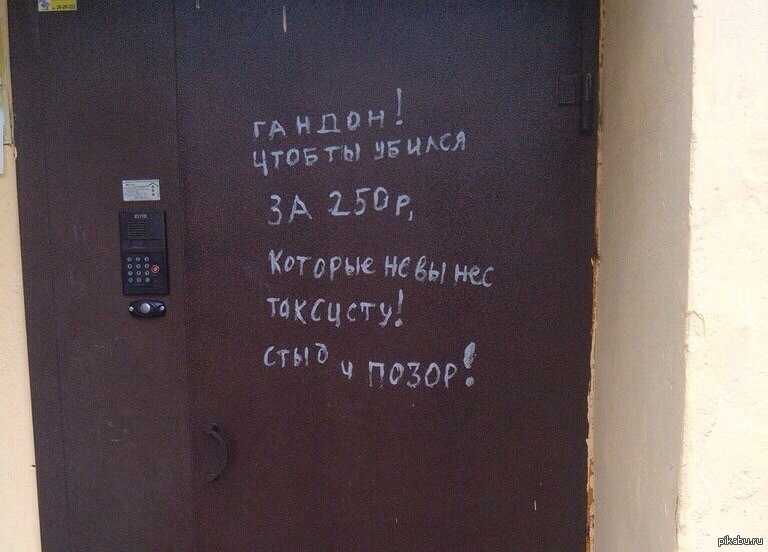 ГАНДОН!
ЧТОБ ТЫ УБИЛСЯ
ЗА 250Р,
Которые не вынес
таксисту!
стыд и ПОЗОР!
ELTIS
pikabu.ru